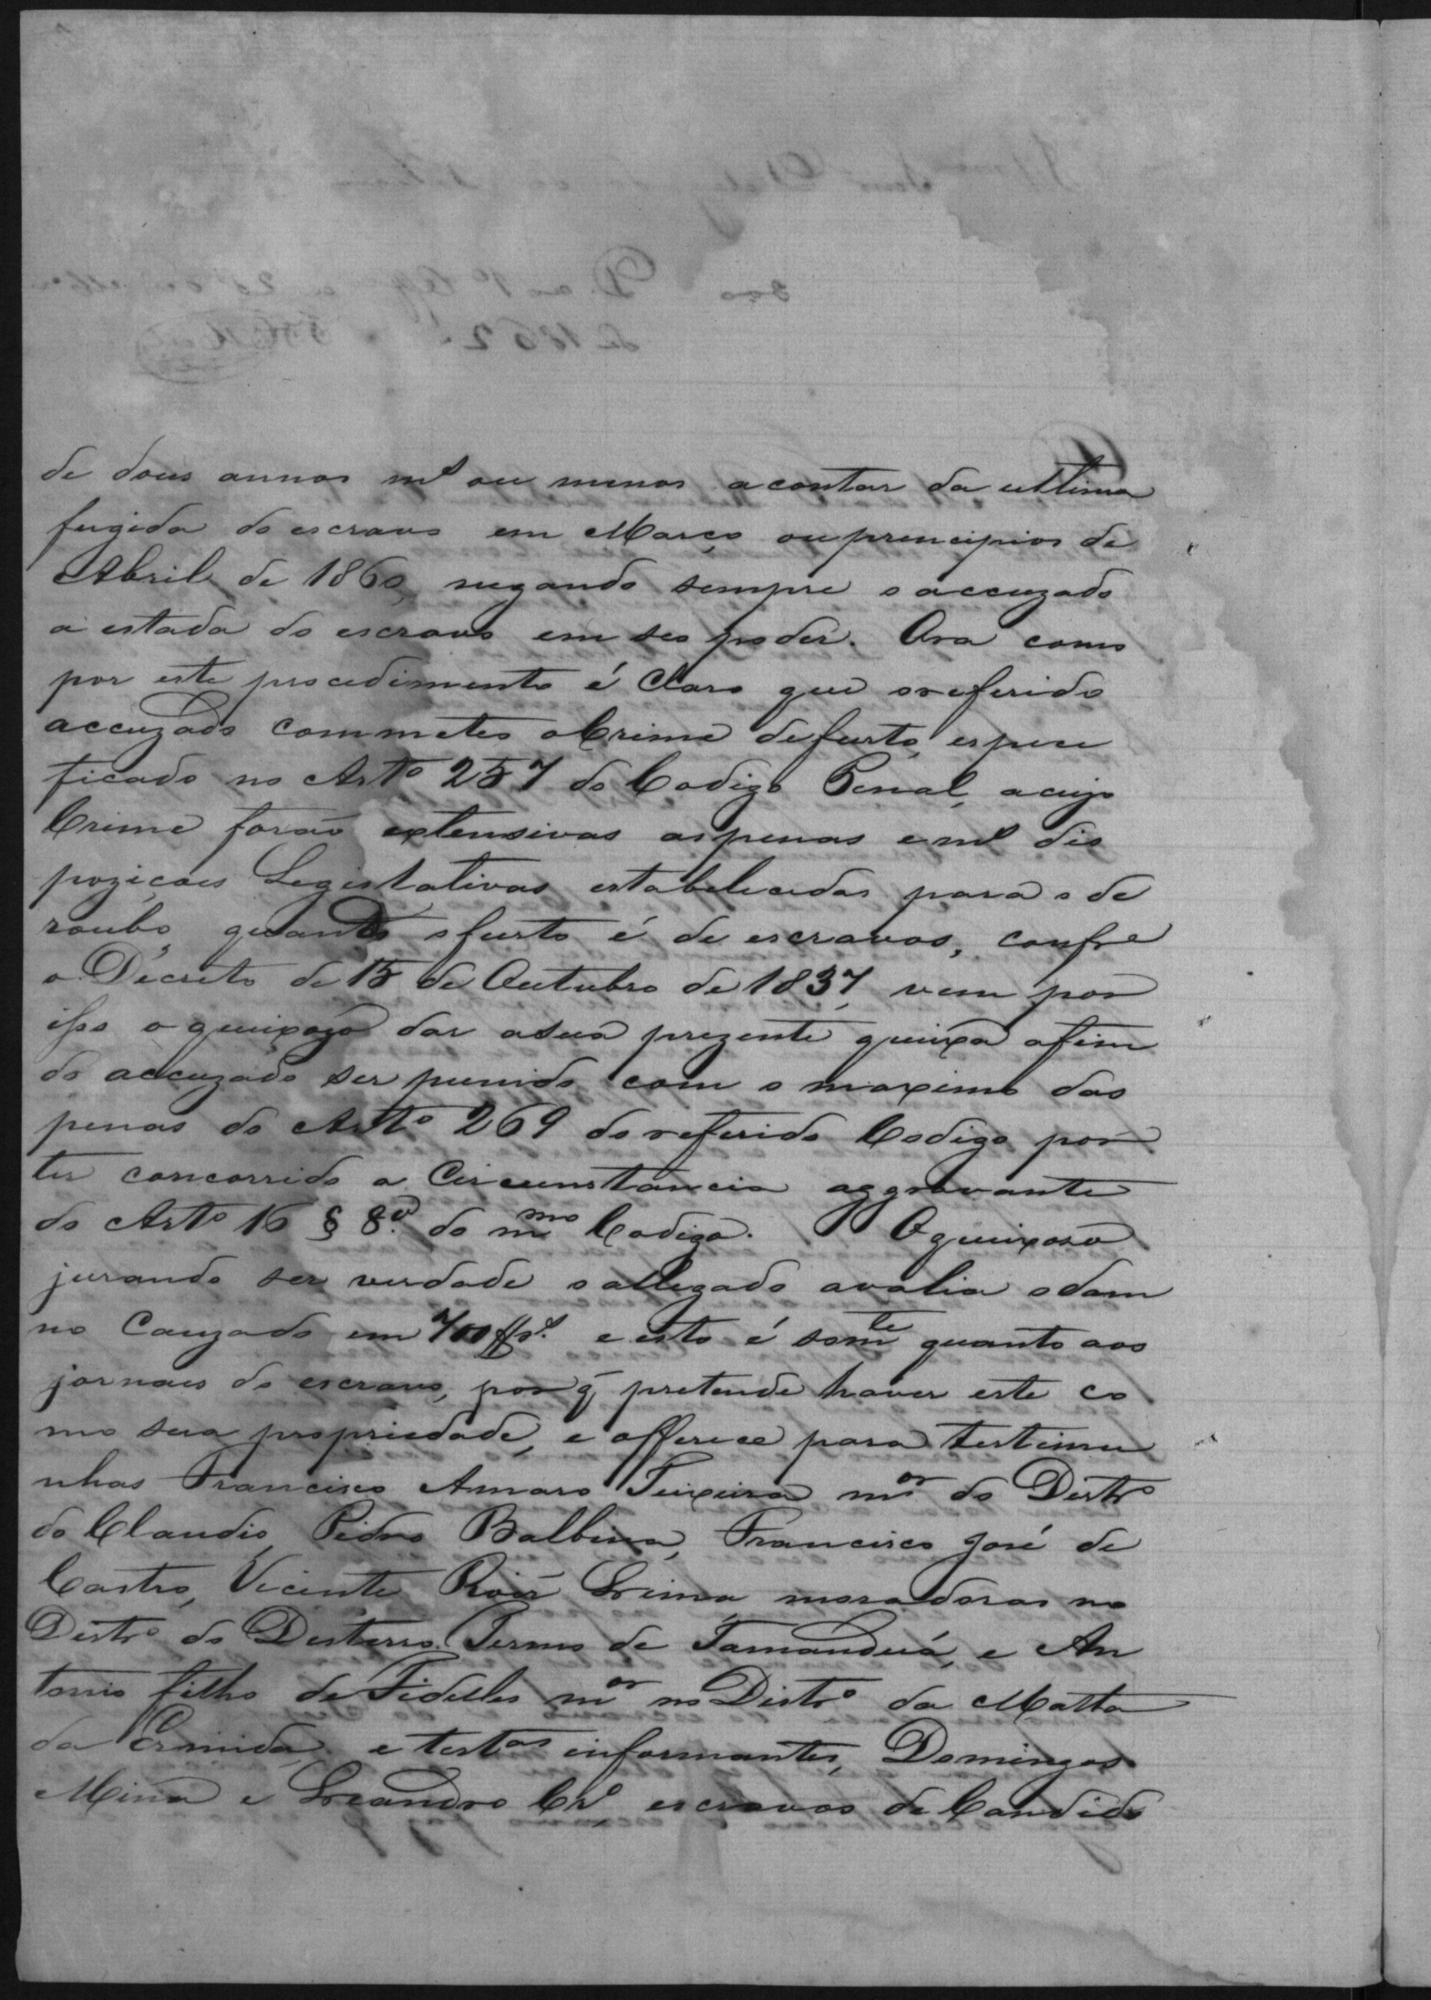 de dous annos m.s ou menos a contar da ultima
fugida do escravo em Março ou principios de
Abril de 1860, negando sempre o accuzado
a estada do escravo em seo poder. Ora como
por este procedimento é claro que o referido
accuzado commeteo o Crime de furto, especi
ficado no Art.º 257 do Codigo Penal, a cujo
Crime forão extensivas as penas e m.s dis
poziçoes Legislativas estabelecidas para o de
roubo, quando o furto é de escravos, conf.e
o Decreto de 15 de Outubro de 1837, vem por
isso o queixoso dar a sua prezente queixa afim
do accuzado ser punido com o maximo das
penas do Art.º 269 do referido Codigo por
ter concorrido a Circunstancia aggravante
do Art.º 16 § 8.º do m.mo Codigo. O queixoso
jurando ser verdade o allegado avalia o dam
no Cauzado em e isto é som.te quanto aos
jornaes do escravo, por q̃ pretende haver este co
mo sua propriedade, e offerece para testimu
nhas Francisco Amaro Teixeira m.or do Distr.º
do Claudio, Pedro Balbino, Francisco José de
Castro, Vicente Roiz Lima moradores no
Distr.º do Desterro Termo de Tamanduá, e An
tonio filho de Fidelles m.or no Distr.º da Matta
da Ermida, e test.as informantes, Domingos
Mina e Leandro Cr.º escravos de Candido